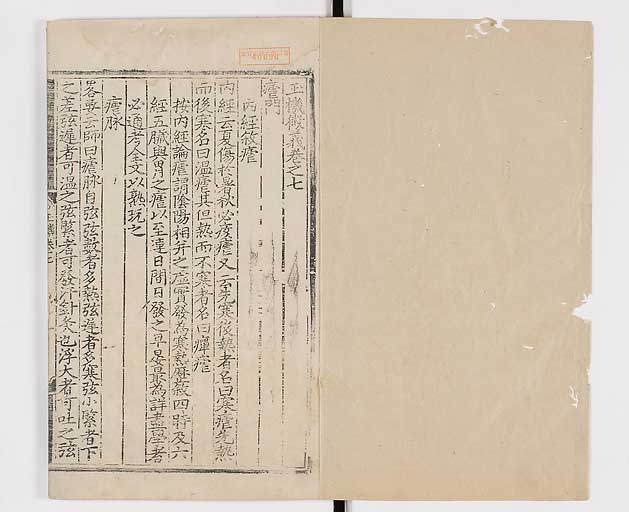 玉機微義卷之七
瘧門
內經敘瘧
內經云夏傷於暑秋必痎瘧又云先寒後熱者名曰寒瘧先熱
而後寒名曰溫瘧其但熱而不寒者名曰癉瘧
按內經論瘧謂陰陽相并之虛實發為寒熱歷敘四時及六
經五臟與胃之瘧以至連日間日發之早晏最為詳盡學者
必通考全文以熟玩之
瘧脉
師曰瘧脉自弦弦數者多熱弦遲者多寒弦小緊者下
之差弦遲者可溫之弦緊者可發汗針灸也浮大者可吐之弦